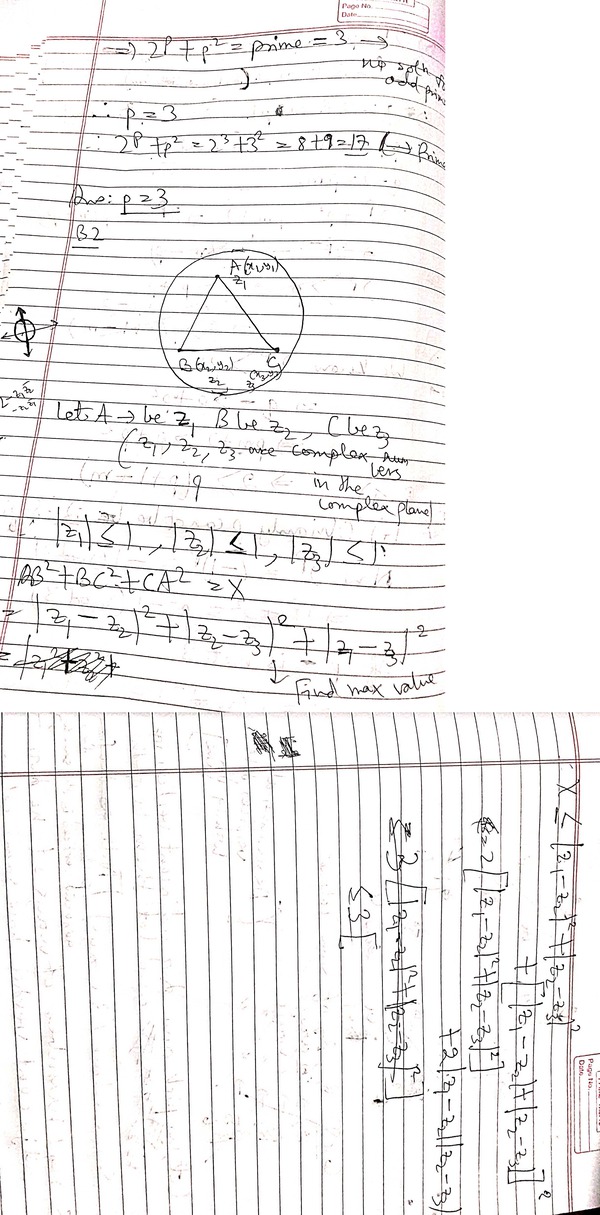 Page No.
Date
=> 2^p + p^2 = prime = 3 →
no soln
odd prime
∴ p = 3
∴ 2^p + p^2 = 2^3 + 3^2 = 8 + 9 = 17 (→ Prime
Ans: p = 3
B2
A(x1,y1)
z1
B(x2,y2)
z2
C
z3
Let A → be z1 B be z2, C be z3
(z1, z2, z3 are complex num
bers
in the
complex plane)
∴ |z1| ≤ 1, |z2| ≤ 1, |z3| ≤ 1
AB^2 + BC^2 + CA^2 = X
= |z1 - z2|^2 + |z2 - z3|^2 + |z1 - z3|^2
↓
Find max value
Page No.
Date
X ≤ |z1 - z2|^2 + |z2 - z3|^2
+ [|z1 - z2| + |z2 - z3|]^2
= 2[|z1 - z2|^2 + |z2 - z3|^2]
+ 2|z1 - z2||z2 - z3|
≤ 3[|z1 - z2|^2 + |z2 - z3|^2]
≤ 3[